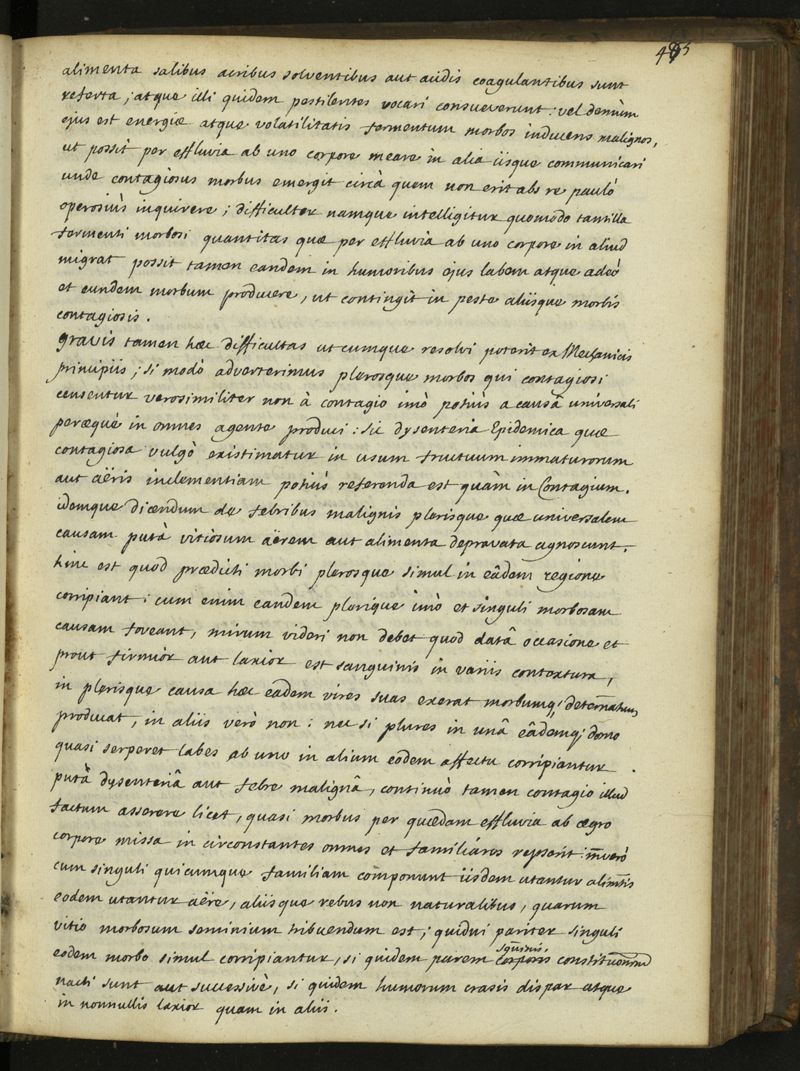 485
alimenta salibus acribus solventibus aut acidis coagulantibus sunt
referta ; atque illi quidem pestilentes vocari consueverunt : vel demùm
ejus est energiæ atque volatilitatis fermentum morbos inducens malignos,
ut possit per effluvia ab uno corpore meare in alia iisque communicari
unde contagiosus morbus emergit circà quem non erit abs re paulò
operosiùs inquirere ; difficulter namque intelligitur quomodo tantilla
fermenti morbosi quantitas quæ per effluvia ab uno corpore in aliud
migrat possit tamen eandem in humoribus ejus labem atque adeò
et eundem morbum producere, ut contingit in peste aliisque morbis
contagiosis.
gravis tamen hæc difficultas utcumque resolvi poterit ex Mechanicis
principiis ; si modò adverterimus plerosque morbos qui contagiosi
censentur verosimiliter non à contagio imò potiùs a causâ universali
peræquè in omnes agente produci : sic dysenteria Epidemica quæ
contagiosa vulgò existimatur in usum fructuum immaturorum
aut aëris inclementiam potiùs referenda est quàm in Contagium.
idemque dicendum de febribus malignis plerisque quæ universalem
causam putà vitiosum aërem aut alimenta depravata agnoscunt.
hinc est quod prædicti morbi plerosque simul in eâdem regione
corripiant : cum enim eandem plerique imò et singuli morbosam
causam foveant, mirum videri non debet quod datâ occasione et
prout firmior aut laxior est sanguinis in variis contextura,
in plerisque causa hæc eadem vires suas exerat morbumq; determinatum
producat, in aliis verò non : nec si plures in unâ eâdemq; domo
quasi serperet labes ab uno in alium eodem affectu corripiantur
putà dysenteriâ aut febre malignâ, continuò tamen contagio illud
factum asserere licet, quasi morbus per quædam effluvia ab ægro
corpore missa in circonstantes omnes et familiares
cum singuli quicumque familiam componunt iisdem utantur alim̅tis
eodem utantur aëre, aliisque rebus non naturalibus, quarum
vitio morbosum seminium tribuendum est ; quidni pariter singuli
eodem morbo simul corripiantur, si quidem parem sg̅uinis corporis
nacti sunt aut successivè, si quidem humorum crasis dispar atque
in nonnullis laxior quam in aliis.